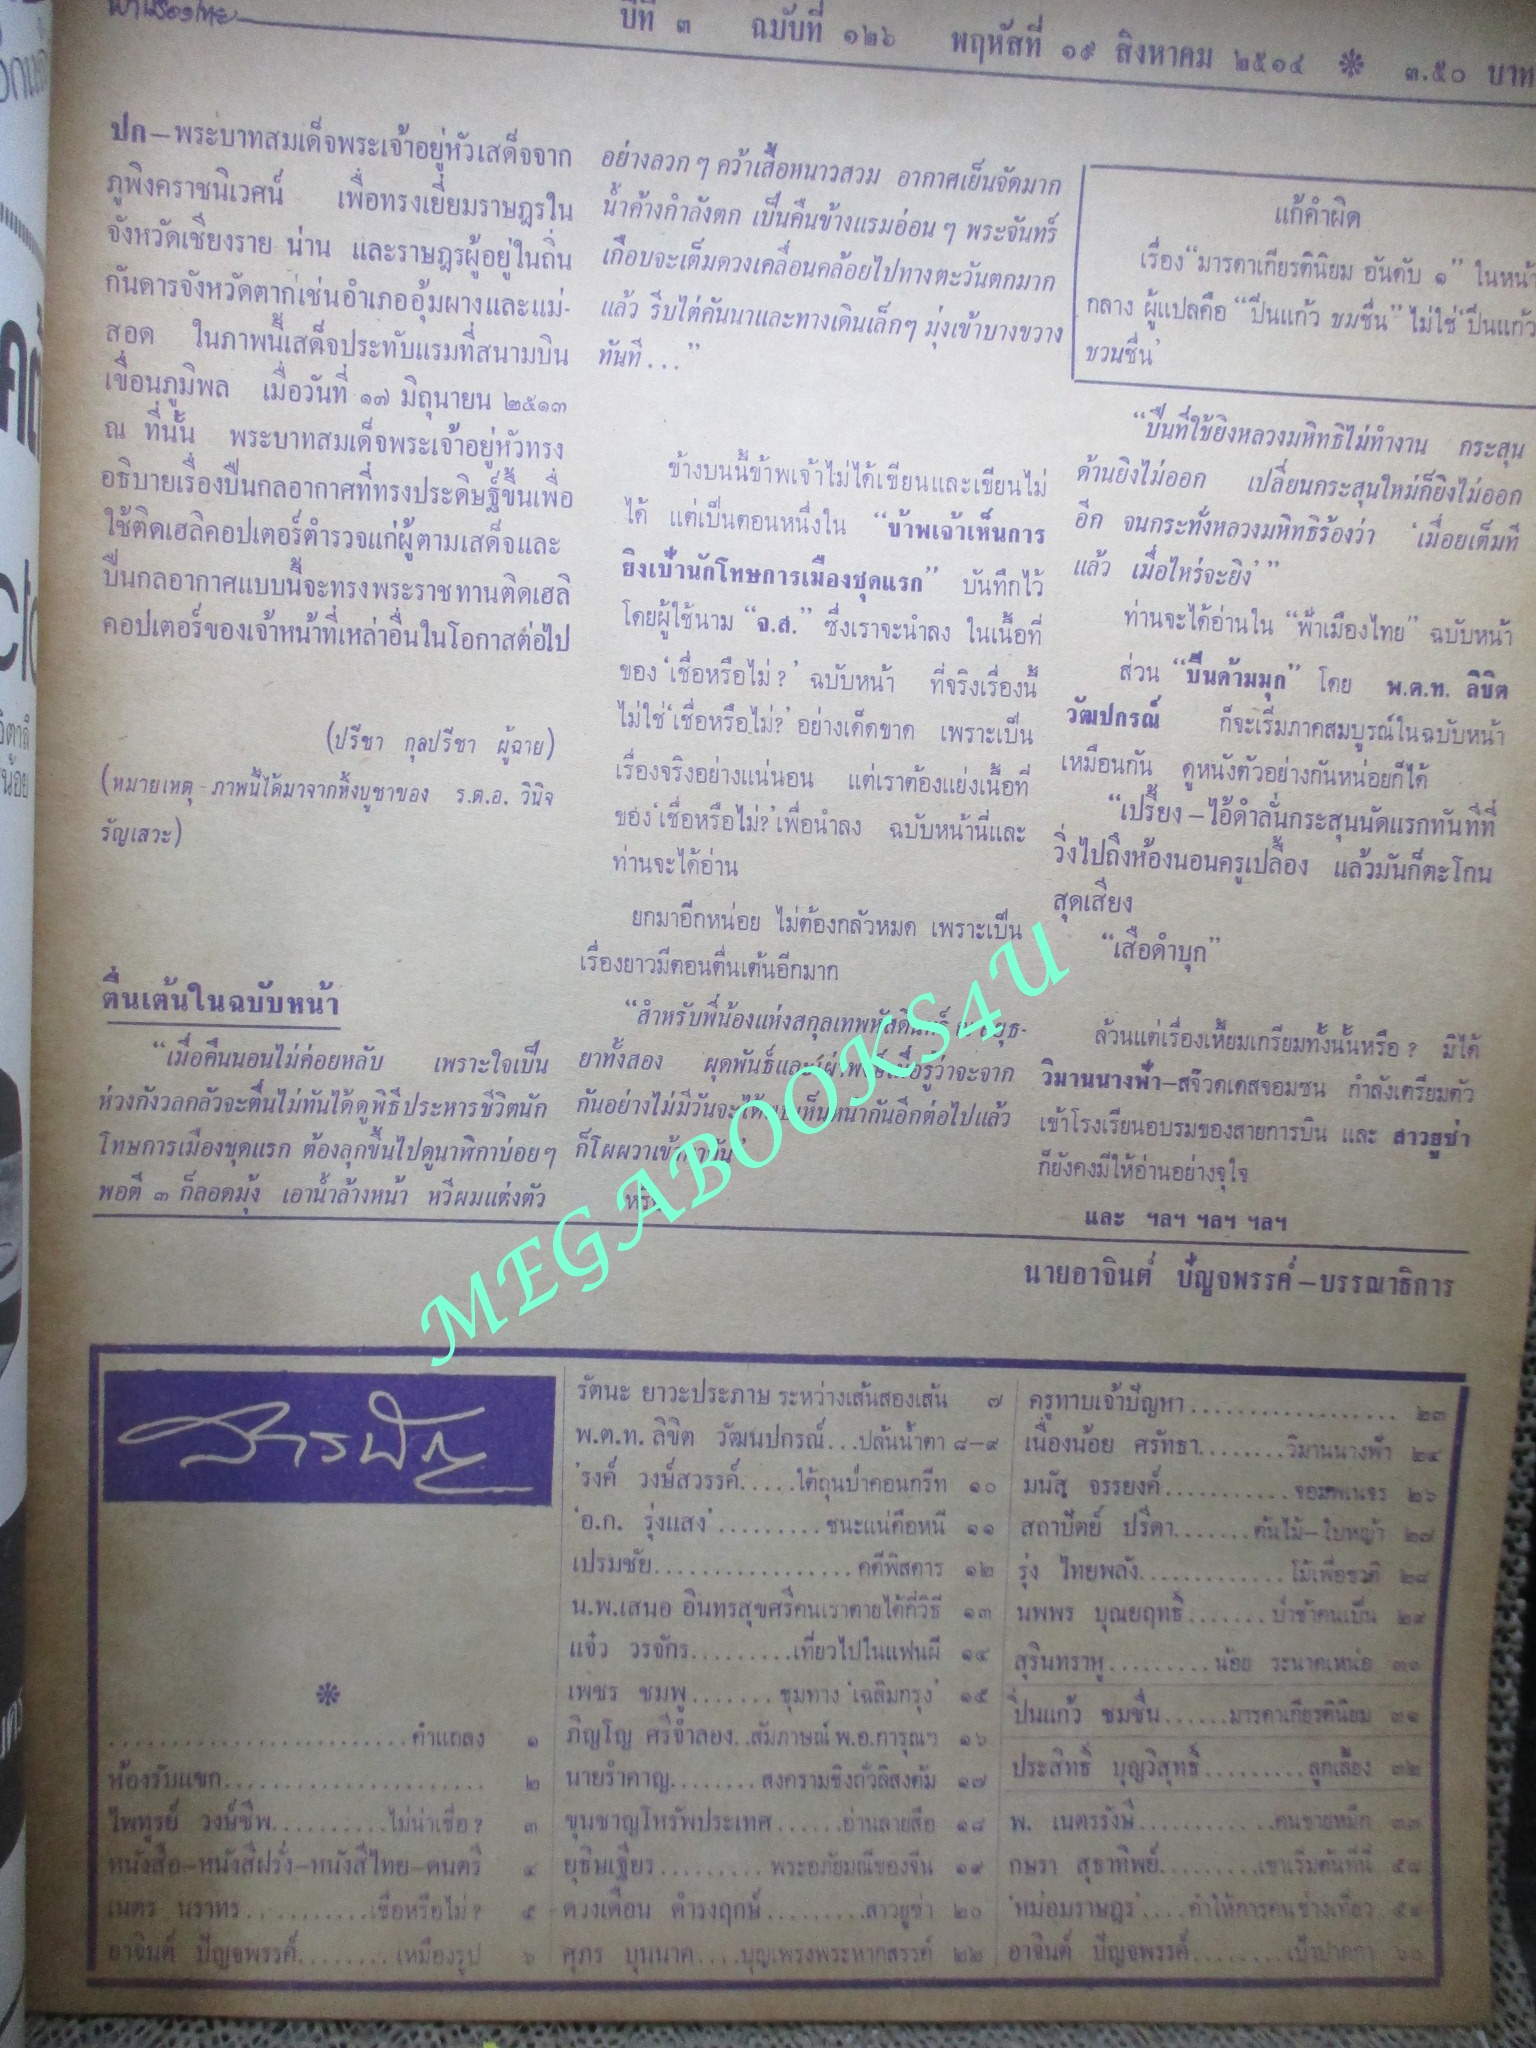 ฟ้าเมืองไทย
ปีที่ ๓ ฉบับที่ ๑๒๖ พฤหัสที่ ๑๙ สิงหาคม ๒๕๑๔ ๓.๕๐ บาท
ปก—พระบาทสมเด็จพระเจ้าอยู่หัวเสด็จจาก
ภูพิงคราชนิเวศน์ เพื่อทรงเยี่ยมราษฎรใน
จังหวัดเชียงราย น่าน และราษฎรผู้อยู่ในถิ่น
กันดารจังหวัดตากเช่นอำเภออุ้มผางและแม่-
สอด ในภาพนี้เสด็จประทับแรมที่สนามบิน
เขื่อนภูมิพล เมื่อวันที่ ๑๗ มิถุนายน ๒๕๑๓
ณ ที่นั้น พระบาทสมเด็จพระเจ้าอยู่หัวทรง
อธิบายเรื่องปืนกลอากาศที่ทรงประดิษฐ์ขึ้นเพื่อ
ใช้ติดเฮลิคอปเตอร์ตำรวจแก่ผู้ตามเสด็จและ
ปืนกลอากาศแบบนี้จะทรงพระราชทานติดเฮลิ
คอปเตอร์ของเจ้าหน้าที่เหล่าอื่นในโอกาสต่อไป
(ปรีชา กุลปรีชา ผู้ฉาย)
(หมายเหตุ ภาพนี้ได้มาจากหิ้งบูชาของ ร.ต.อ. วินิจ
รัญเสวะ)
ตื่นเต้นในฉบับหน้า
“เมื่อคืนนอนไม่ค่อยหลับ เพราะใจเป็น
ห่วงกังวลกลัวจะตื่นไม่ทันได้ดูพิธีประหารชีวิตนัก
โทษการเมืองชุดแรก ต้องลุกขึ้นไปดูนาฬิกาบ่อยๆ
พอตี ๓ ก็ลอดมุ้ง เอาน้ำล้างหน้า หวีผมแต่งตัว
อย่างลวกๆ คว้าเสื้อหนาวสวม อากาศเย็นจัดมาก
น้ำค้างกำลังตก เป็นคืนข้างแรมอ่อนๆ พระจันทร์
เกือบจะเต็มดวงเคลื่อนคล้อยไปทางตะวันตกมาก
แล้ว รีบไต่คันนาและทางเดินเล็กๆ มุ่งเข้าบางขวาง
ทันที...”
ข้างบนนี้ข้าพเจ้าไม่ได้เขียนและเขียนไม่
ได้ แต่เป็นตอนหนึ่งใน “ข้าพเจ้าเห็นการ
ยิงเป้านักโทษการเมืองชุดแรก” บันทึกไว้
โดยผู้ใช้นาม “จ.ส.” ซึ่งเราจะนำลง ในเนื้อที่
ของ ‘เชื่อหรือไม่?’ ฉบับหน้า ที่จริงเรื่องนี้
ไม่ใช่ ‘เชื่อหรือไม่?’ อย่างเด็ดขาด เพราะเป็น
เรื่องจริงอย่างแน่นอน แต่เราต้องแย่งเนื้อที่
ของ ‘เชื่อหรือไม่?’ เพื่อนำลง ฉบับหน้านี่และ
ท่านจะได้อ่าน
ยกมาอีกหน่อย ไม่ต้องกลัวหมด เพราะเป็น
เรื่องยาวมีตอนตื่นเต้นอีกมาก
“สำหรับพี่น้องแห่งสกุลเทพหัสดินทร์ ณ อยุธ-
ยาทั้งสอง ผุดพันธ์และเผ่าพงษ์เมื่อรู้ว่าจะจาก
กันอย่างไม่มีวันจะได้พบเห็นหน้ากันอีกต่อไปแล้ว
ก็โผผวาเข้า
แก้คำผิด
เรื่อง “มารดาเกียรตินิยม อันดับ ๑” ในหน้า
กลาง ผู้แปลคือ “ปิ่นแก้ว ชมชื่น” ไม่ใช่ ‘ปิ่นแก้ว
ชวนชื่น’
“ปืนที่ใช้ยิงหลวงมหิทธิไม่ทำงาน กระสุน
ด้านยิงไม่ออก เปลี่ยนกระสุนใหม่ก็ยิงไม่ออก
อีก จนกระทั่งหลวงมหิทธิร้องว่า ‘เมื่อยเต็มที
แล้ว เมื่อไหร่จะยิง’ ”
ท่านจะได้อ่านใน “ฟ้าเมืองไทย” ฉบับหน้า
ส่วน “ปืนด้ามมุก” โดย พ.ต.ท. ลิขิต
วัฒปกรณ์ ก็จะเริ่มภาคสมบูรณ์ในฉบับหน้า
เหมือนกัน ดูหนังตัวอย่างกันหน่อยก็ได้
“เปรี้ยง—ไอ้ดำลั่นกระสุนนัดแรกทันทีที่
วิ่งไปถึงห้องนอนครูเปลื้อง แล้วมันก็ตะโกน
สุดเสียง
“เสือดำบุก”
ล้วนแต่เรื่องเหี้ยมเกรียมทั้งนั้นหรือ? มิได้
วิมานนางฟ้า—สจ๊วตเดสจอมซน กำลังเตรียมตัว
เข้าโรงเรียนอบรมของสายการบิน และ สาวยูซ่า
ก็ยังคงมีให้อ่านอย่างจุใจ
และ ฯลฯ ฯลฯ ฯลฯ
นายอาจินต์ ปัญจพรรค์—บรรณาธิการ
สารบัญ
........................คำแถลง ๑
ห้องรับแขก...................... ๒
ไพฑูรย์ วงษ์ชีพ..........ไม่น่าเชื่อ? ๓
หนังสือ—หนังสือฝรั่ง—หนังสือไทย—ดนตรี ๔
เนตร นราทร...........เชื่อหรือไม่? ๕
อาจินต์ ปัญจพรรค์........เหมืองรูป ๖
รัตนะ ยาวะประภาษ ระหว่างเส้นสองเส้น ๗
พ.ต.ท. ลิขิต วัฒนปกรณ์...ปล้นน้ำตา ๘—๙
’รงค์ วงษ์สวรรค์.....ใต้ถุนป่าคอนกรีท ๑๐
‘อ.ก. รุ่งแสง’.........ชนะแน่คือหนี ๑๑
เปรมชัย.................คดีพิสดาร ๑๒
น.พ.เสนอ อินทรสุขศรีคนเราตายได้กี่วิธี ๑๓
แจ๋ว วรจักร.........เที่ยวไปในแฟนผี ๑๔
เพชร ชมพู.......ชุมทาง ‘เฉลิมกรุง’ ๑๕
ภิญโญ ศรีจำลอง..สัมภาษณ์ พ.อ.การุณฯ ๑๖
นายรำคาญ........สงครามชิงถั่วลิสงต้ม ๑๗
ขุนชาญโหรัพประเทศ......อ่านลายสือ ๑๘
ยุธิษเฐียร.........พระอภัยมณีของจีน ๑๙
ดวงเดือน ดำรงฤกษ์.........สาวยูซ่า ๒๐
ศุภร บุนนาค....บุญเพรงพระหากสรรค์ ๒๒
ครูทาบเจ้าปัญหา.................. ๒๓
เนื่องน้อย ศรัทธา........วิมานนางฟ้า ๒๔
มนัส จรรยงค์...........จอมพเนจร ๒๖
สถาปัตย์ ปรีดา.......ต้นไม้—ใบหญ้า ๒๗
รุ่ง ไทยพลัง.............โม้เพื่อชาติ ๒๘
นพพร บุณยฤทธิ์.......ป่าช้าคนเป็น ๒๙
สุรินทราหู.........น้อย ระนาดเหน่อ ๓๐
ปิ่นแก้ว ชมชื่น......มารดาเกียรตินิยม ๓๑
ประสิทธิ์ บุญวิสุทธิ์.........ลูกเลี้ยง ๓๒
พ. เนตรรังษี............คนขายหมึก ๓๓
กษรา สุธาทิพย์.........เขาเริ่มต้นที่นี่ ๕๘
‘หม่อมราษฎร’....คำให้การคนช่างเที่ยว ๕๙
อาจินต์ ปัญจพรรค์........เป้าปากกา ๖๐
MEGABOOKS4U